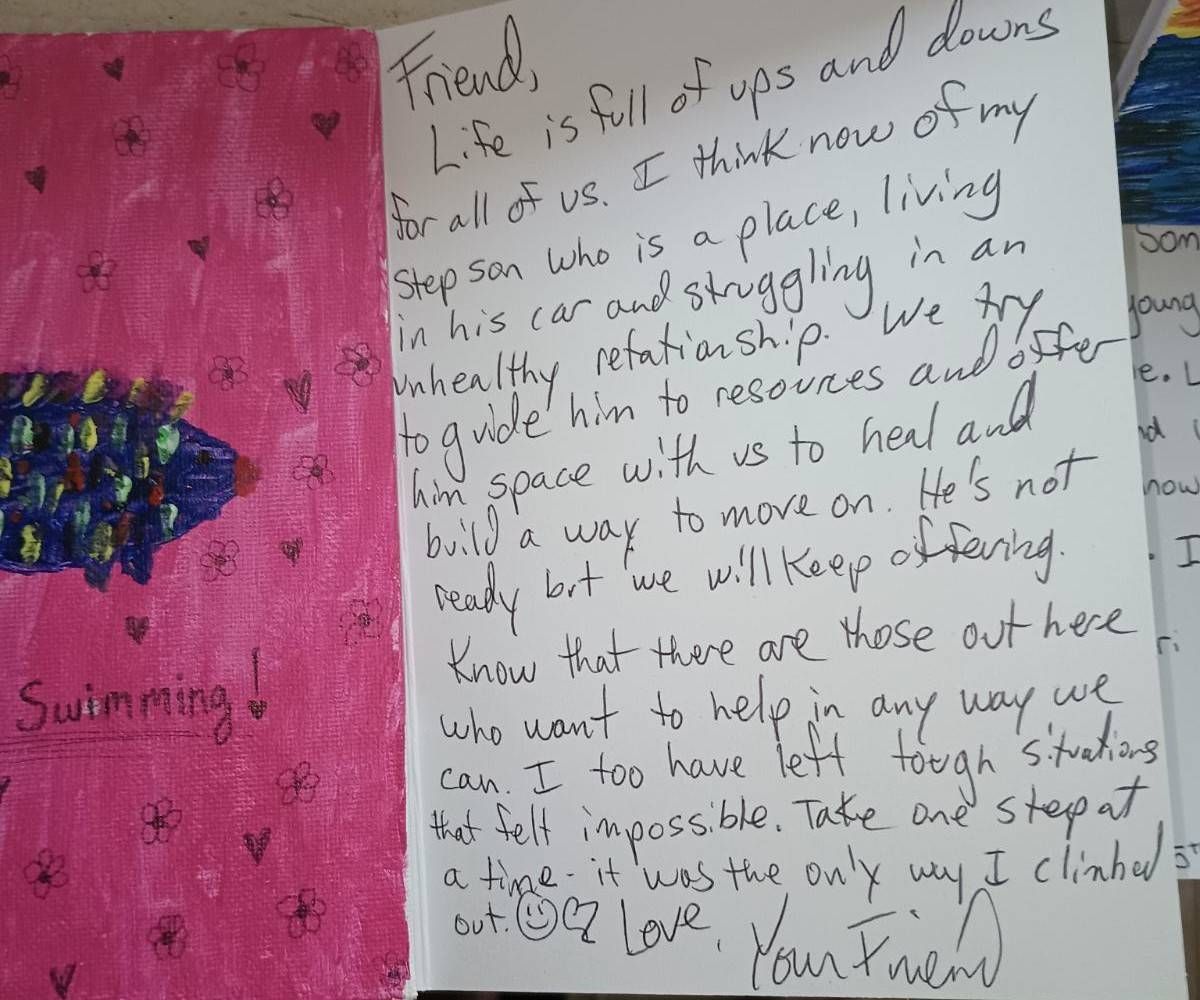 Friend,
Life is full of ups and downs
for all of us. I think now of my
step son who is a place, living
in his car and struggling in an
unhealthy relationship. We try
to guide him to resources and offer
him space with us to heal and
build a way to move on. He's not
ready but we will keep offering.
Know that there are those out here
who want to help in any way we
can. I too have left tough situations
that felt impossible. Take one step at
a time - it was the only way I climbed
out. Love,
Your Friend
Swimming!
Som
young
e. L
nd
now
. I